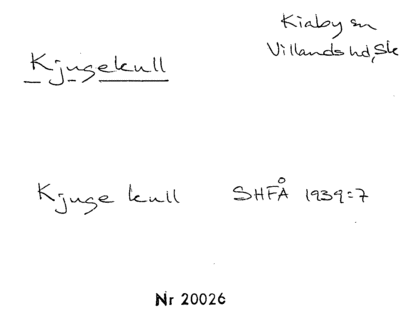 Kiaby sn
Villands hd, Sk
Kjugekull
Kjuge kull SHFÅ 1939:7
Nr 20026